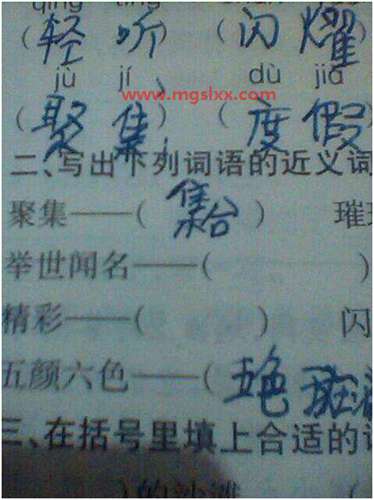 (轻 听) (闪 耀
jù jí dù jià
www.mgslxx.com
(聚 集) (度 假
二、写出下列词语的近义词
聚集——( 集合 ) 璀
举世闻名——( )
精彩——( ) 闪
五颜六色——( 五色 斑
三、在括号里填上合适的
)的沙滩 (